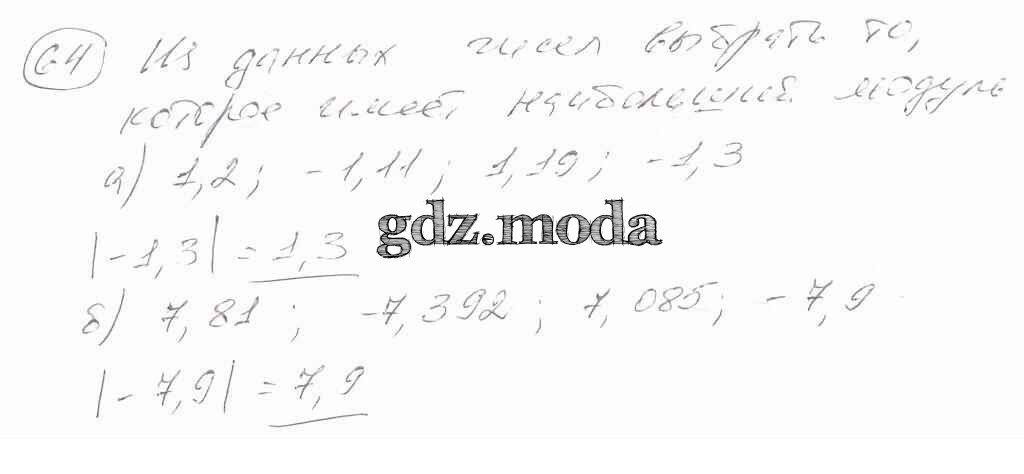 64 Из данных чисел выбрать то,
которое имеет наибольший модуль
а) 1,2; -1,11; 1,19; -1,3
gdz.moda
|-1,3| = 1,3
б) 7,81; -7,392; 7,085; -7,9
|-7,9| = 7,9